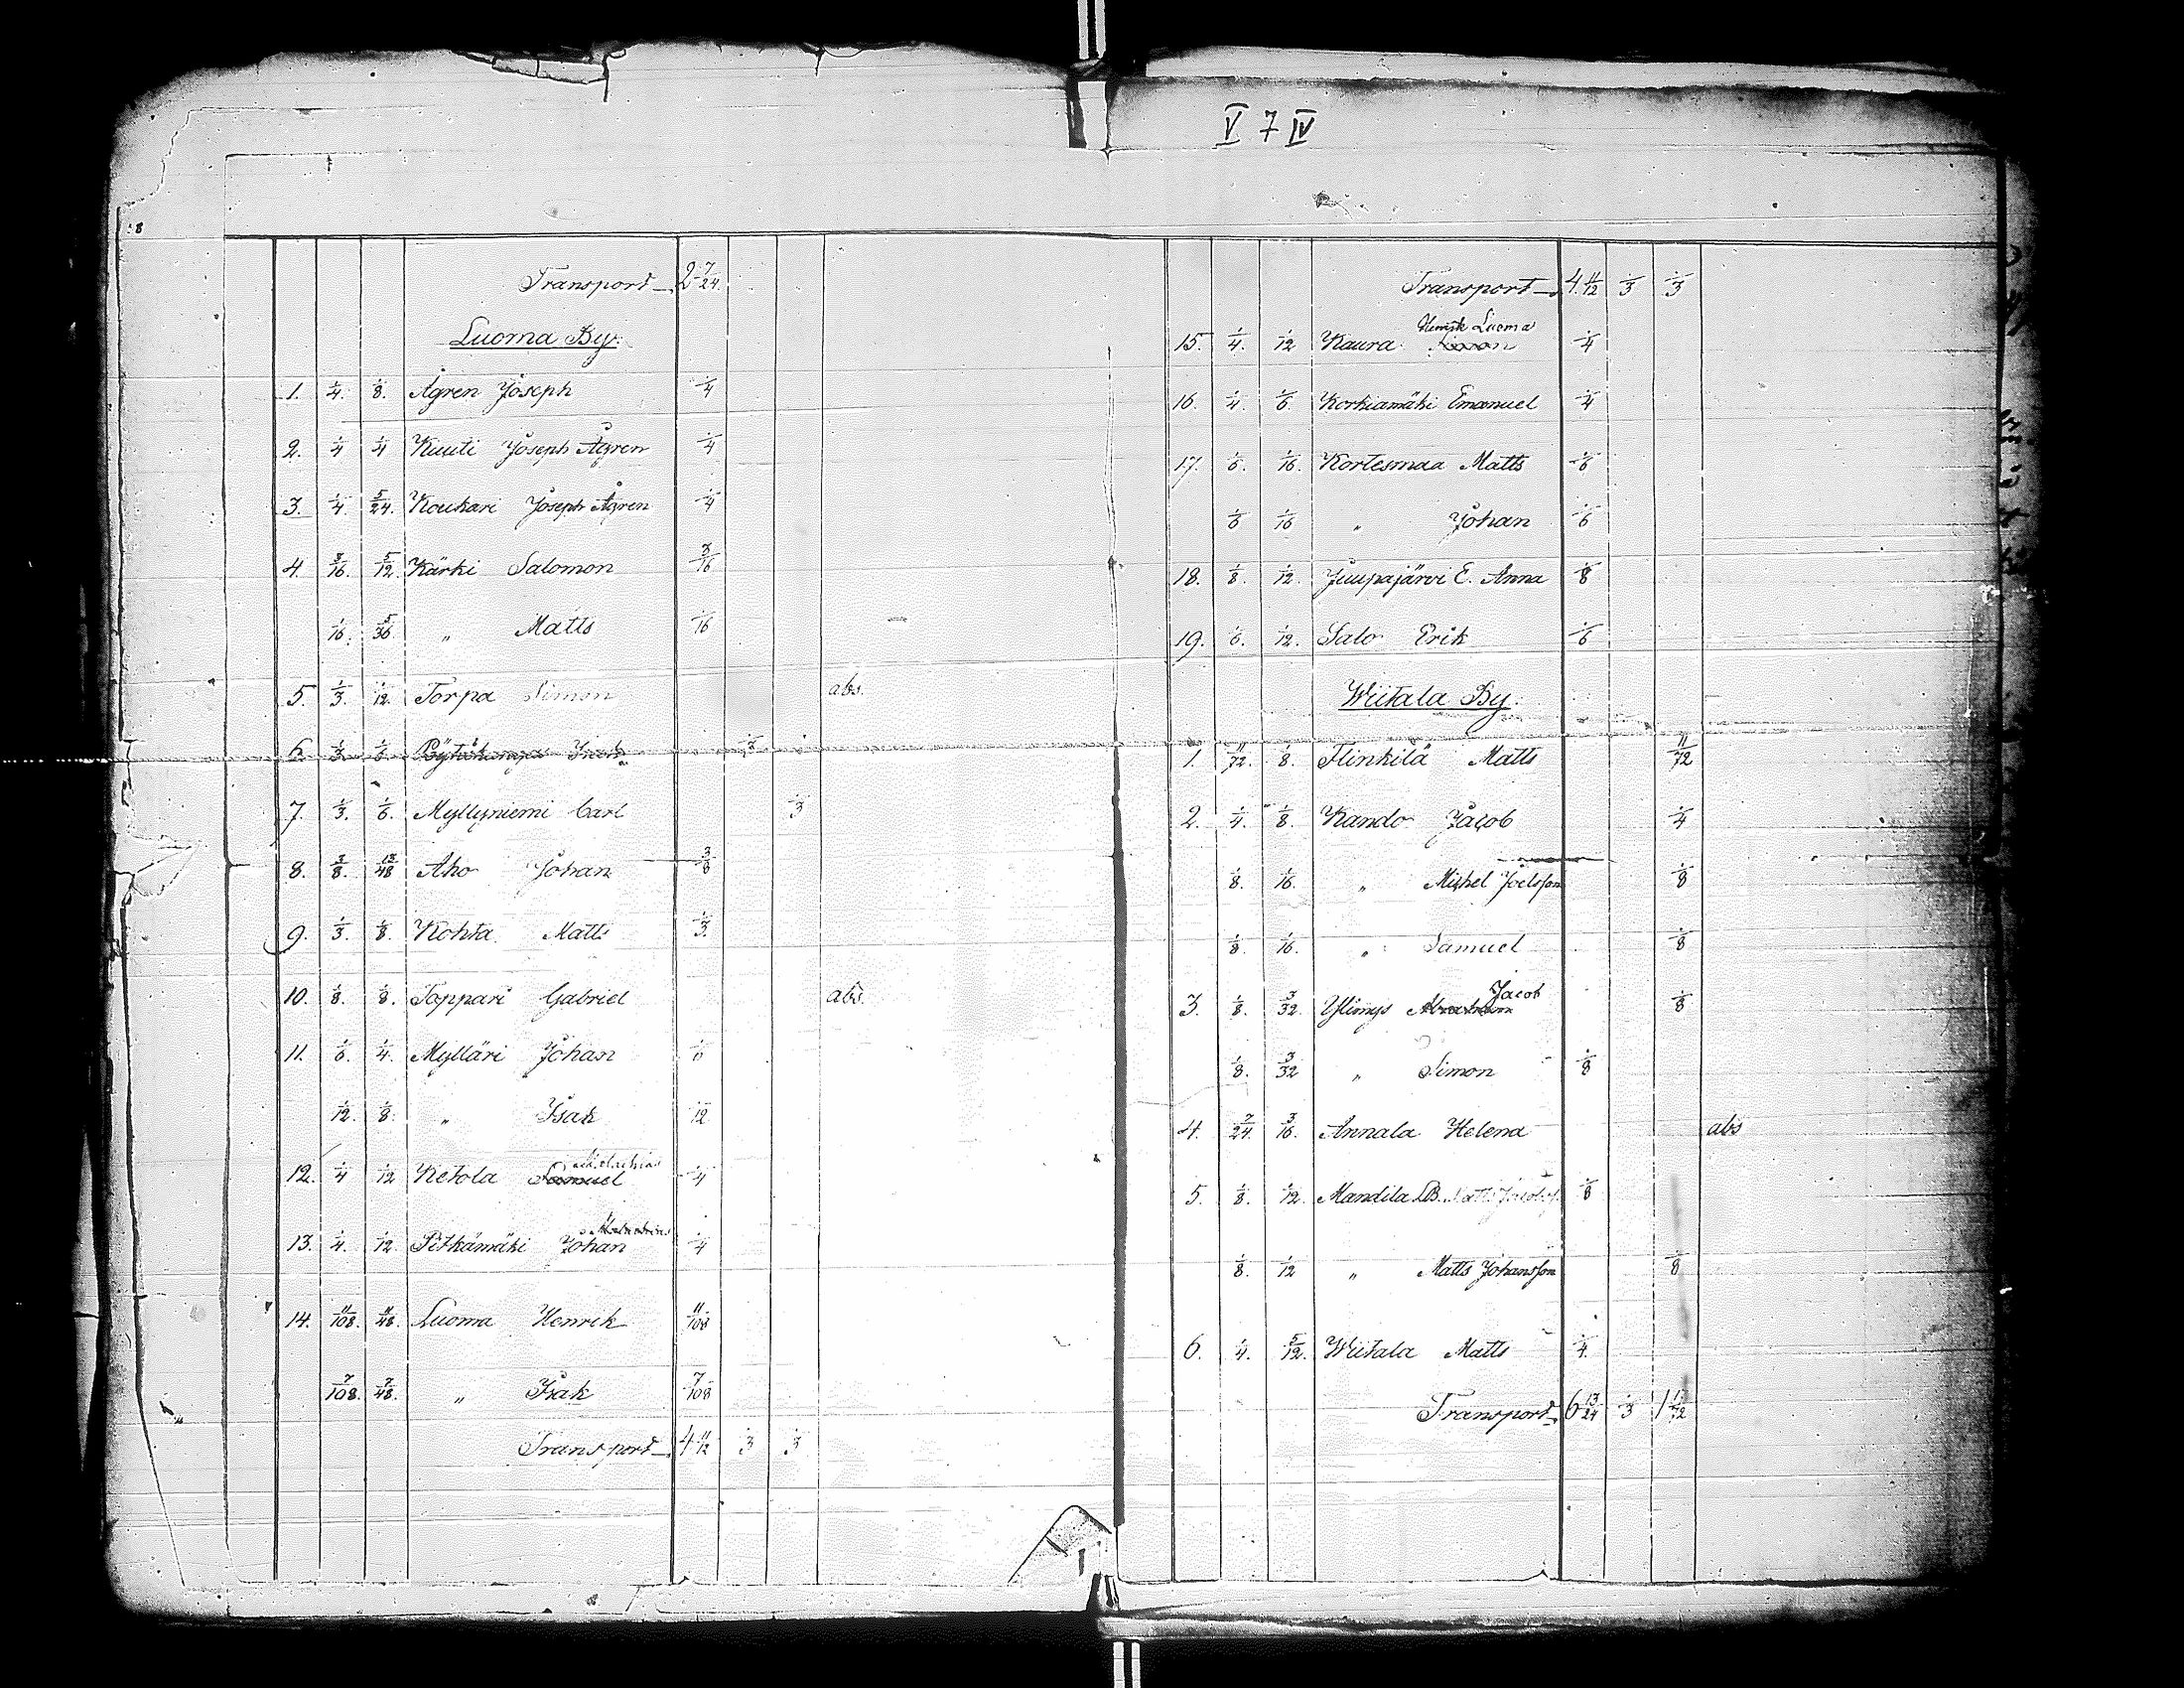 V 7 IV
8
Transport 2 7/24.
Luoma By.
1. 1/4. 1/8. Ågren Joseph 1/4
2. 1/4 1/4 Kuuti Joseph Ågren 1/4
3. 1/4. 5/24. Koukari Joseph Ågren 1/4
4. 3/16. 5/12. Kärki Salomon 3/16
1/16. 5/36. " Matts 1/16
5. 1/3. 1/12. Torpa Simon abs.
6. 1/3. 1/6. 1/3
7. 1/3. 1/6. Myllyniemi Carl 1/3
8. 3/8. 13/48 Aho Johan 3/8
9. 1/3. 1/8. Kohta Matts 1/3.
10. 1/8. 1/8. Toppari Gabriel abs.
11. 1/6. 1/4. Mylläri Johan 1/6
1/12. 1/8. " Isak 1/12
12. 1/4 1/12 Ketola Samuel 1/4
13. 1/4. 1/12. Pitkämäki Johan 1/4
14. 11/108. 11/48. Luoma Henrik 11/108
7/108. 7/48. " Isak 7/108
Transport 4 11/12 1/3 1/3
Transport 4. 11/12 1/3 1/3
Henrik Luoma
15. 1/4. 1/12 Kaura Simon 1/4
16. 1/4. 1/6. Korkiamäki Emanuel 1/4
17. 1/6. 1/16. Kortesmaa Matts 1/6
1/6 1/16 " Johan 1/6
18. 1/8. 1/12. Juupajärvi E. Anna 1/8
19. 1/6. 1/12. Salo Erik 1/6
Wiitala By.
1. 11/72. 1/8. Flinkilä Matts 11/72
2. 1/4. 1/8. Kando Jacob 1/4
1/8. 1/16. " Michel Joelsson 1/8
1/8. 1/16. " Samuel 1/8
Jacob
3. 1/8. 3/32. Ylimys Abraham 1/8
1/8. 3/32 " Simon 1/8
4. 7/24. 3/16. Annala Helena abs
5. 1/8. 1/12. Mandila LB. Matts 1/8
1/8. 1/12 " Matts Johansson 1/8
6. 1/4. 5/12. Wiitala Matts 1/4.
Transport 6 13/24 1/3